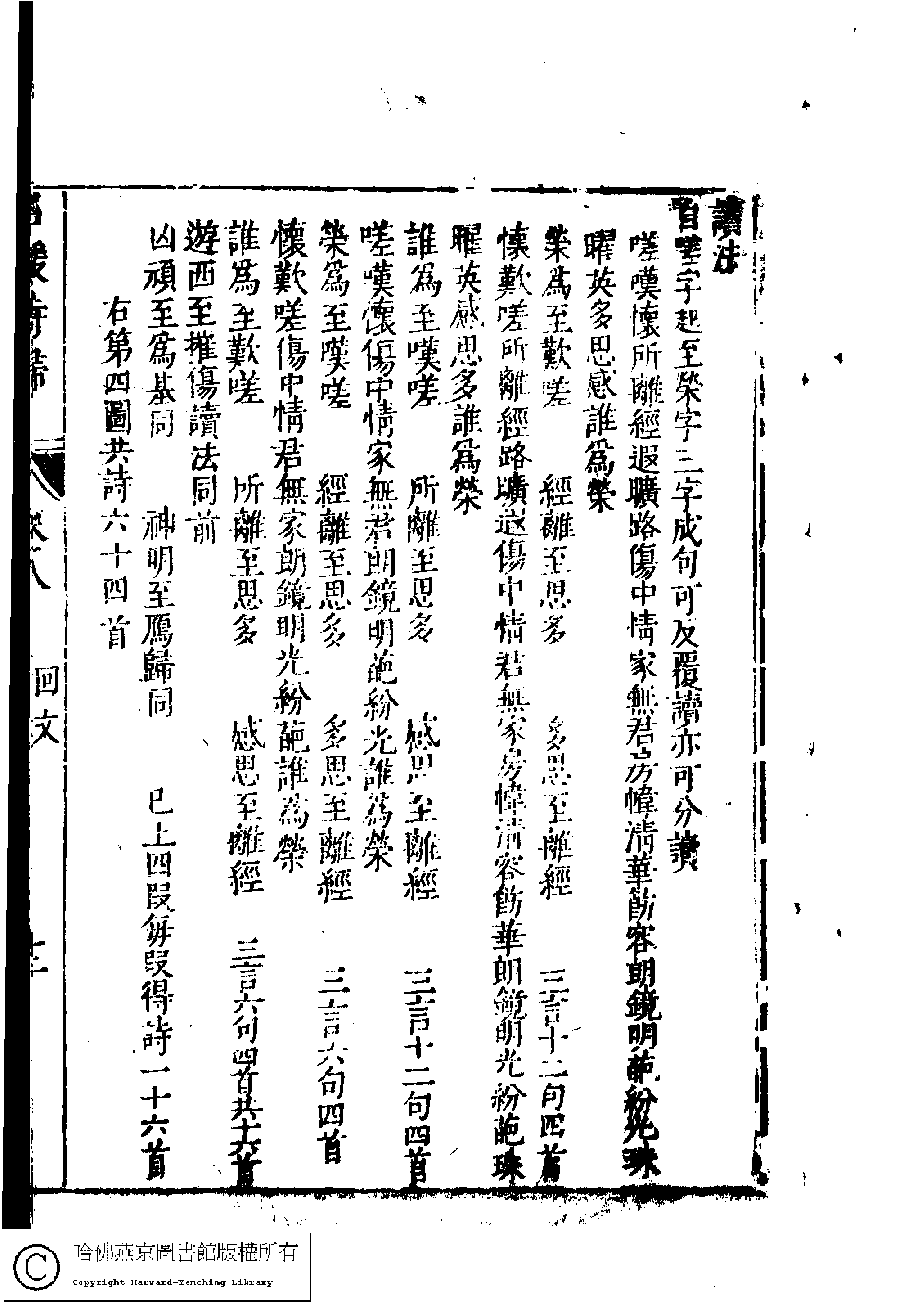 讀法
自嗟字起至榮字三字成句可反覆讀亦可分讀
嗟嘆懷所離經遐曠路傷中情家無君房幃清華飾容朗鏡明葩紛光珠
曜英多思感誰為榮
榮為至歎嗟　經離至思多　多思至離經　三言十二句四首
懷歎嗟所離經路曠遐傷中情君無家房幃清容飾華朗鏡明光紛葩珠
曜英感思多誰為榮
誰為至嘆嗟　所離至思多　感思至離經　三言十二句四首
嗟嘆懷傷中情家無君朗鏡明葩紛光誰為榮
榮為至嘆嗟　經離至思多　多思至離經　三言六句四首
懷歎嗟傷中情君無家朗鏡明光紛葩誰為榮
誰為至歎嗟　所離至思多　感思至離經　三言六句四首共十六首
遊西至摧傷讀法同前
凶頑至為基同　神明至鴈歸同　已上四段每段得詩一十六首
右第四圖共詩六十四首
回文
哈佛燕京圖書館版權所有
Copyright Harvard-Yenching Library